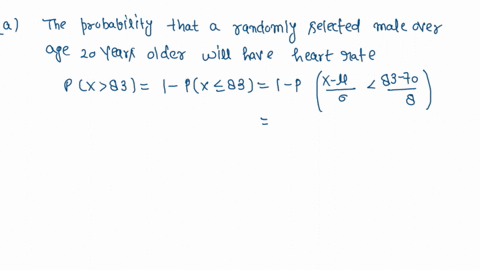 (a) The probability that a randomly selected male over
age 20 years older will have heart rate
P(X>83) = 1-P(X≤83) = 1-P (X-μ/σ < 83-70/8)
=